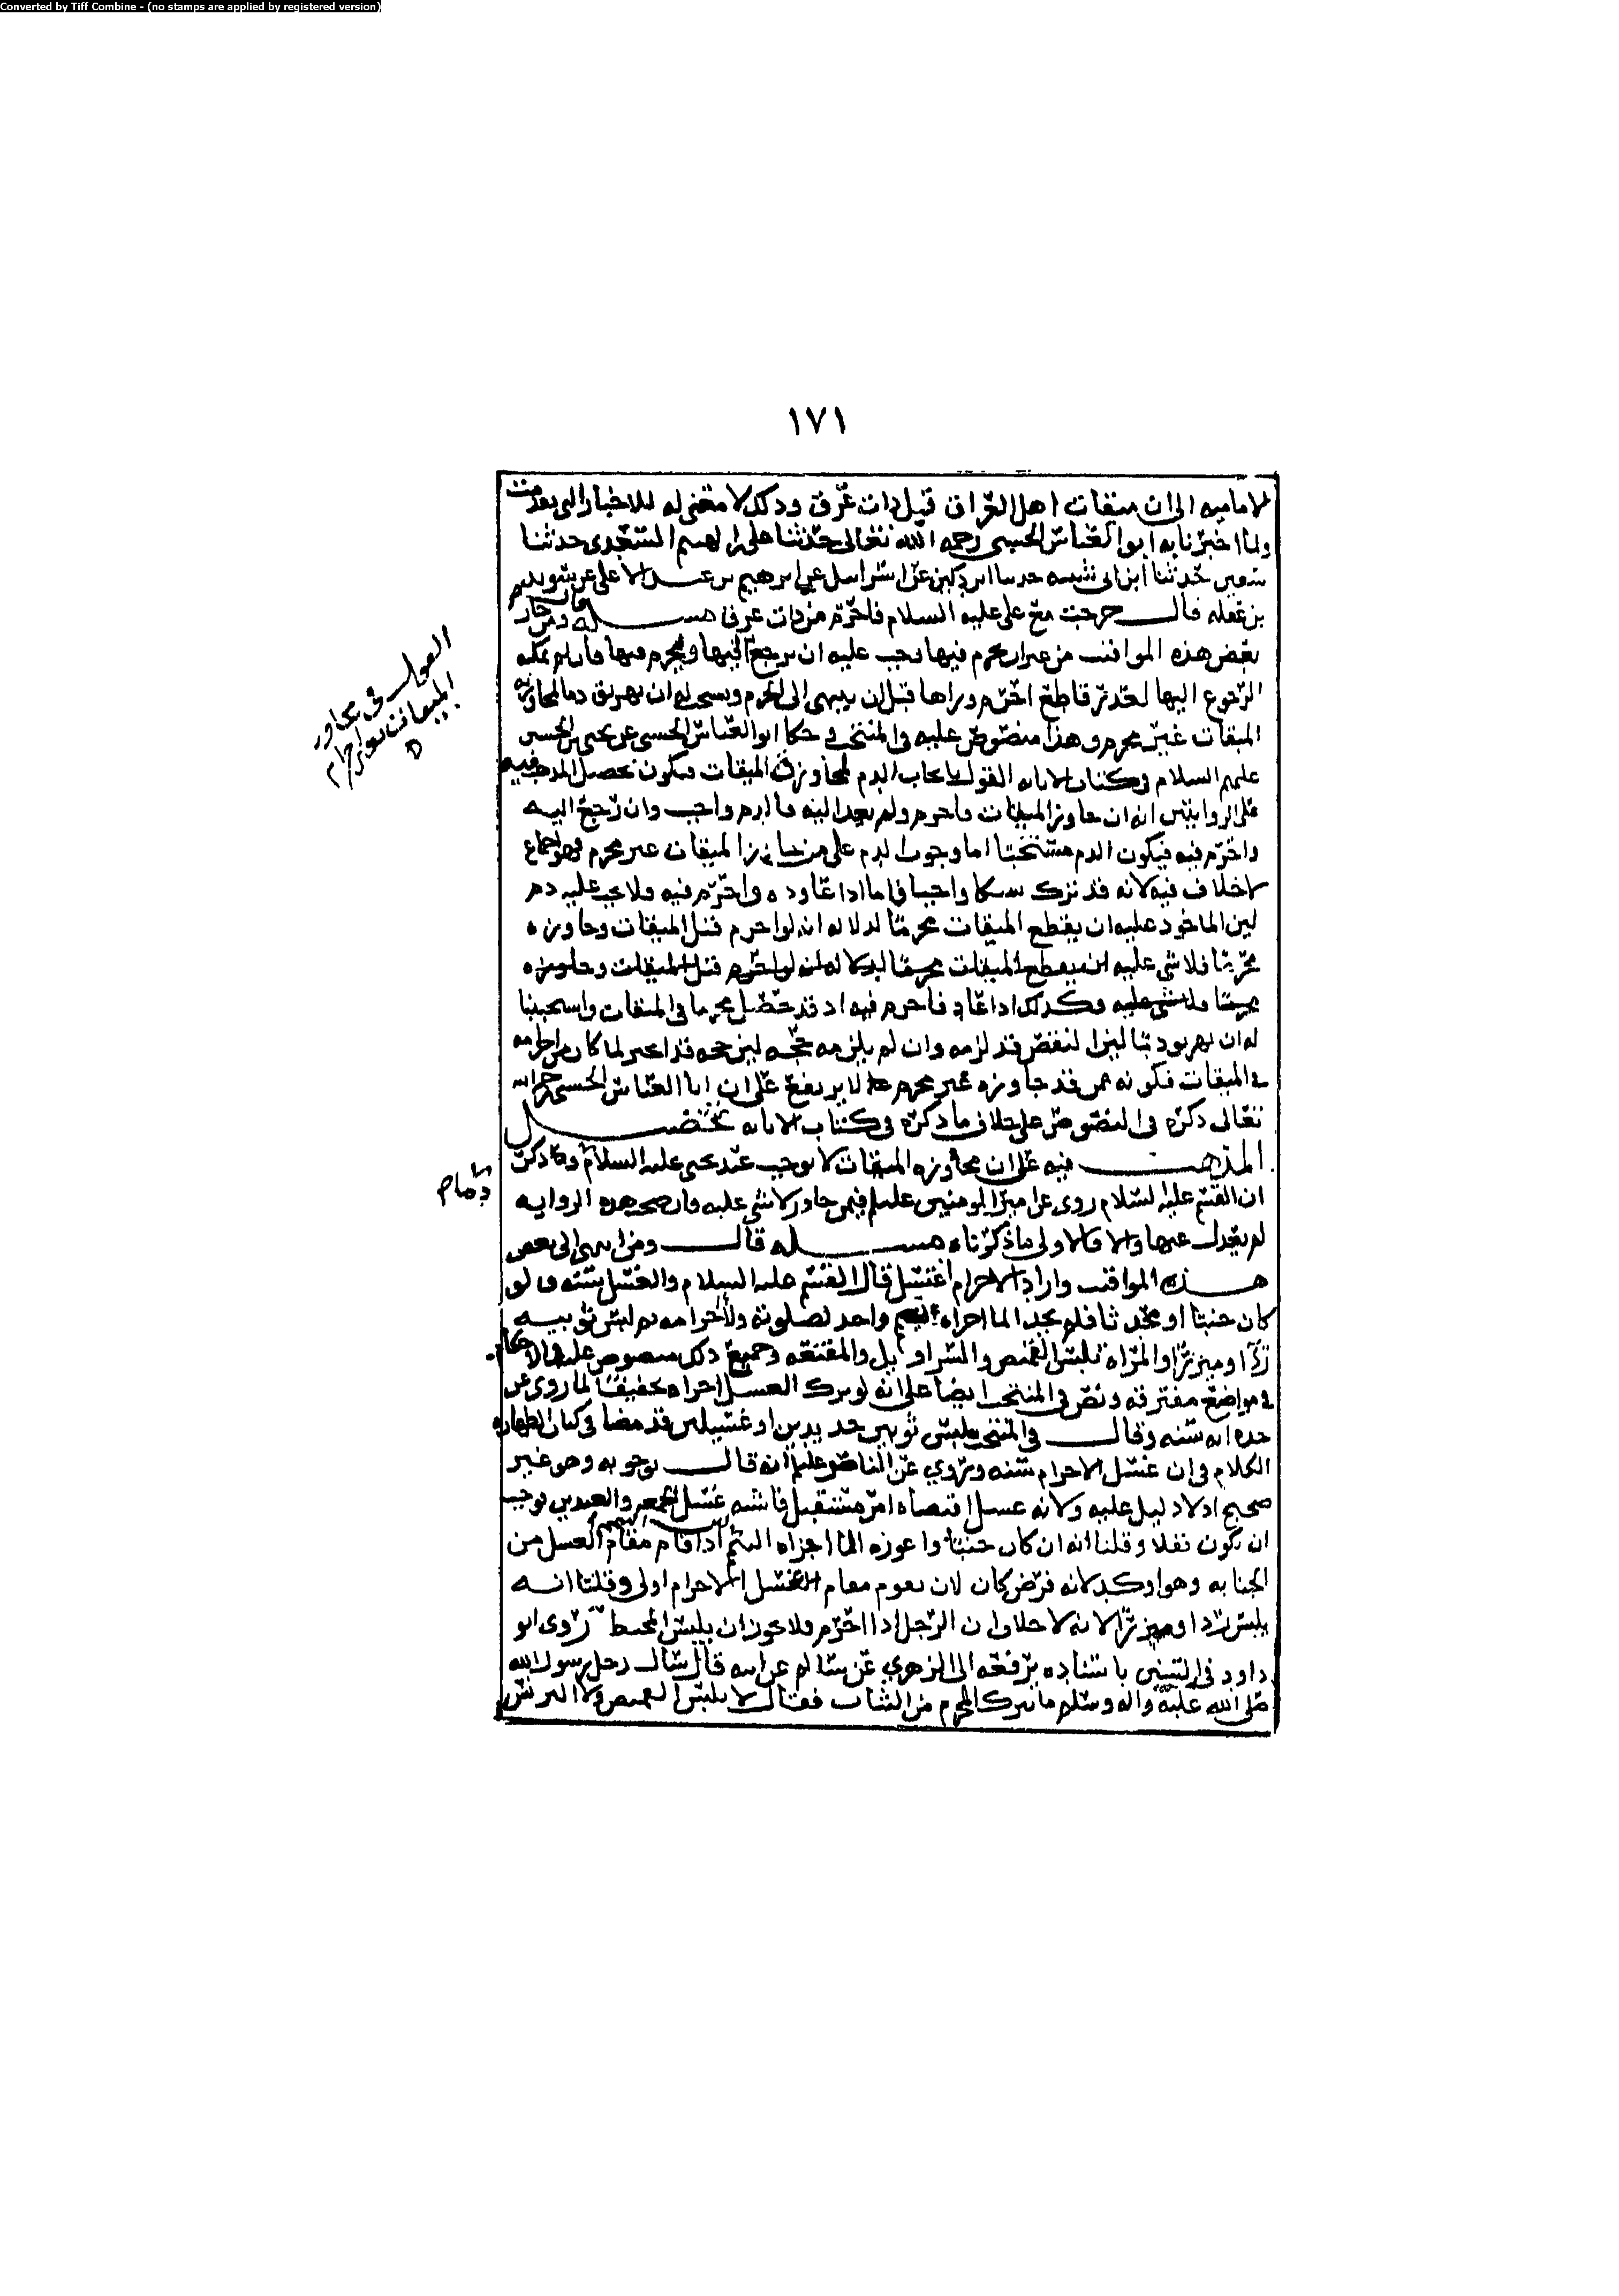 Converted by Tiff Combine - (no stamps are applied by registered version)
١٧١
الاماميه الى ان ميقات اهل العراق قبل ذات عرق وذلك لا معنى له للاخبار التى تقدمت
ولما اخبرنا به ابو العباس الحسنى رحمه الله تعالى حدثنا على بن الهسم السعدى حدثنا
حدثنا ابن ابى شيبه حدسا ابن دكين عن اسراسل عن ابرهيم بن عبد الاعلى عن سويد
بن غفله قال خرجت مع على عليه السلام فاحرم من ذات عرق مسله قال ومن جاز
بعض هذه المواقيت من غير ان يحرم فيها يجب عليه ان يرجع اليها ويحرم فيها فان لم يمكنه
الرجوع اليها لعذر قاطع احرم وراها قبل ان ينتهى الى الحرم ويستحب له ان يهريق دما لمجاوزته
الميقات غير محرم وهذا منصوص عليه فى المنتخب وحكا ابو العباس الحسنى عن يحيى بن الحسين
عليهم السلام فى كتاب الابانه القول بايجاب الدم لمجاوزة الميقات فيكون تحصيل المذهب فيه
على الروايتين انه ان جاوز الميقات فاحرم ولم يعد اليه فالدم واجب وان رجع اليه
واحرم فيه فيكون الدم مستحبا اما وجوب الدم على من جاوز الميقات غير محرم فهو اجماع
لا خلاف فيه لانه قد ترك نسكا واجبا فاما اذا عاوده واحرم فيه فلا يجب عليه دم
لين الماخوذ عليه ان يقطع الميقات محرما لدلاله انه لو احرم قبل الميقات وجاوزه
محرما فلا شى عليه ان يقطع الميقات محرما لدلاله انه لو احرم قبل الميقات وجاوزه
محرما فلا شى عليه وكذلك اذا عاد فاحرم فيه اذ قد حصل محرما فى الميقات واستحببنا
له ان يهريق دما لين النقض قد لزمه وان لم يلزمه حجه لين حجه قد اجبر لما كان من احرامه
فى الميقات فكونه ممن قد جاوزه غير محرم لا يرتفع على ان ابا العباس الحسنى رحمه الله
تعالى ذكره فى النصوص على خلاف ما ذكره فى كتاب الابانه تحصيل
المذهب فيه على ان مجاوزه الميقات لا يوجب عند يحيى عليه السلام دما وذكر
ان القسم عليه السلام روى عن امير المومنين عليلم فيمن جاوز لا شى عليه فان صحت هذه الروايه
لم يعدل عنها والا فالاولى ما ذكرناه مسله قال ومن انتهى الى بعض
هذه المواقيت واراد الاحرام اغتسل قال القسم عليه السلام والغسل سنة ولو
كان جنبا او محدثا فلم يجد الما اجزاه تيمم واحد لصلوته ولاحرامه ثم لبس ثوبيه
ردا وميزرا والمراه تلبس القميص والسراويل والمقنعه وجميع ذلك منصوص عليه فى الاحكام
فى مواضع مفترقه ونص فى المنتخب ايضا على انه لو ترك الغسل اجزاه تخفيفا لما روى عن
جده انه سنه وقال فى المنتخب يلبس ثوبين جديدين او غسيلين قد مضا فى كتاب الطهاره
الكلام فى ان غسل الاحرام سنه وروي عن الناصر عليلم انه قال بوجوبه وهو غير
صحيح اذ لا دليل عليه ولانه غسل اقتضاه امر مستقبل فاشبه غسل الجمعه والعيدين فوجب
ان يكون نفلا وقلنا انه ان كان جنبا واعوزه الما اجزاه التيمم اذا قام مقام الغسل من
الجنابه وهو اوكد لانه فرض كان لان يقوم مقام الغسل للاحرام اولى وقلنا انه
يلبس ردا وميزرا لانه لا خلاف ان الرجل اذا احرم فلا يجوز ان يلبس المخيط روى ابو
داود فى السنن باسناده يرفعه الى الزهري عن سالم عن ابيه قال سال رجل رسول الله
صلى الله عليه واله وسلم ما يترك المحرم من الثياب فقال لا يلبس القميص ولا البرنس
القول فى مجاوز
الميقات بغير احرام